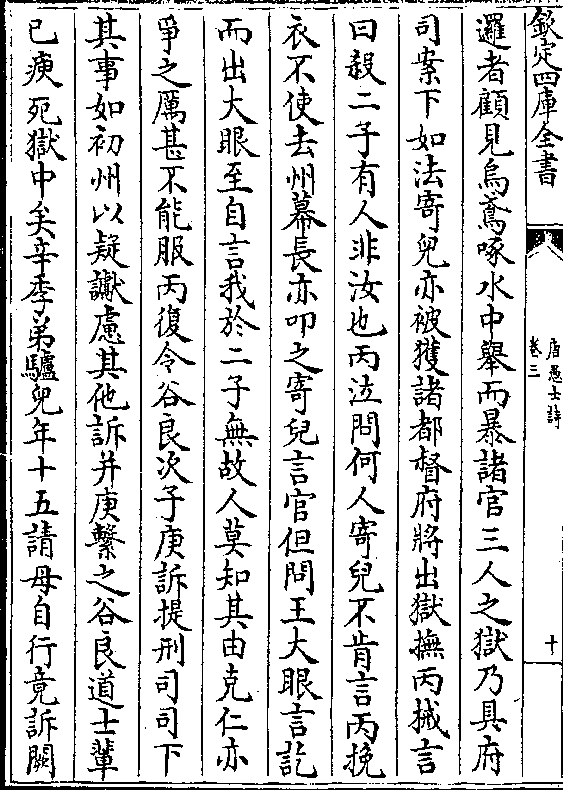 欽定四庫全書
唐愚士詩
卷三
十
邏者顧見烏鳶啄水中舉而暴諸官三人之獄乃具府
司案下如法寄兒亦被獲諸都督府將出獄撫丙械言
曰殺二子有人非汝也丙泣問何人寄兒不肯言丙挽
衣不使去州幕長亦叩之寄兒言官但問王大眼言訖
而出大眼至自言我於二子無故人莫知其由克仁亦
爭之厲甚不能服丙復令谷良次子庚訴提刑司司下
其事如初州以疑讞慮其他訴并庚繫之谷良道士輩
已瘐死獄中矣辛季弟驢兒年十五請母自行竟訴闕